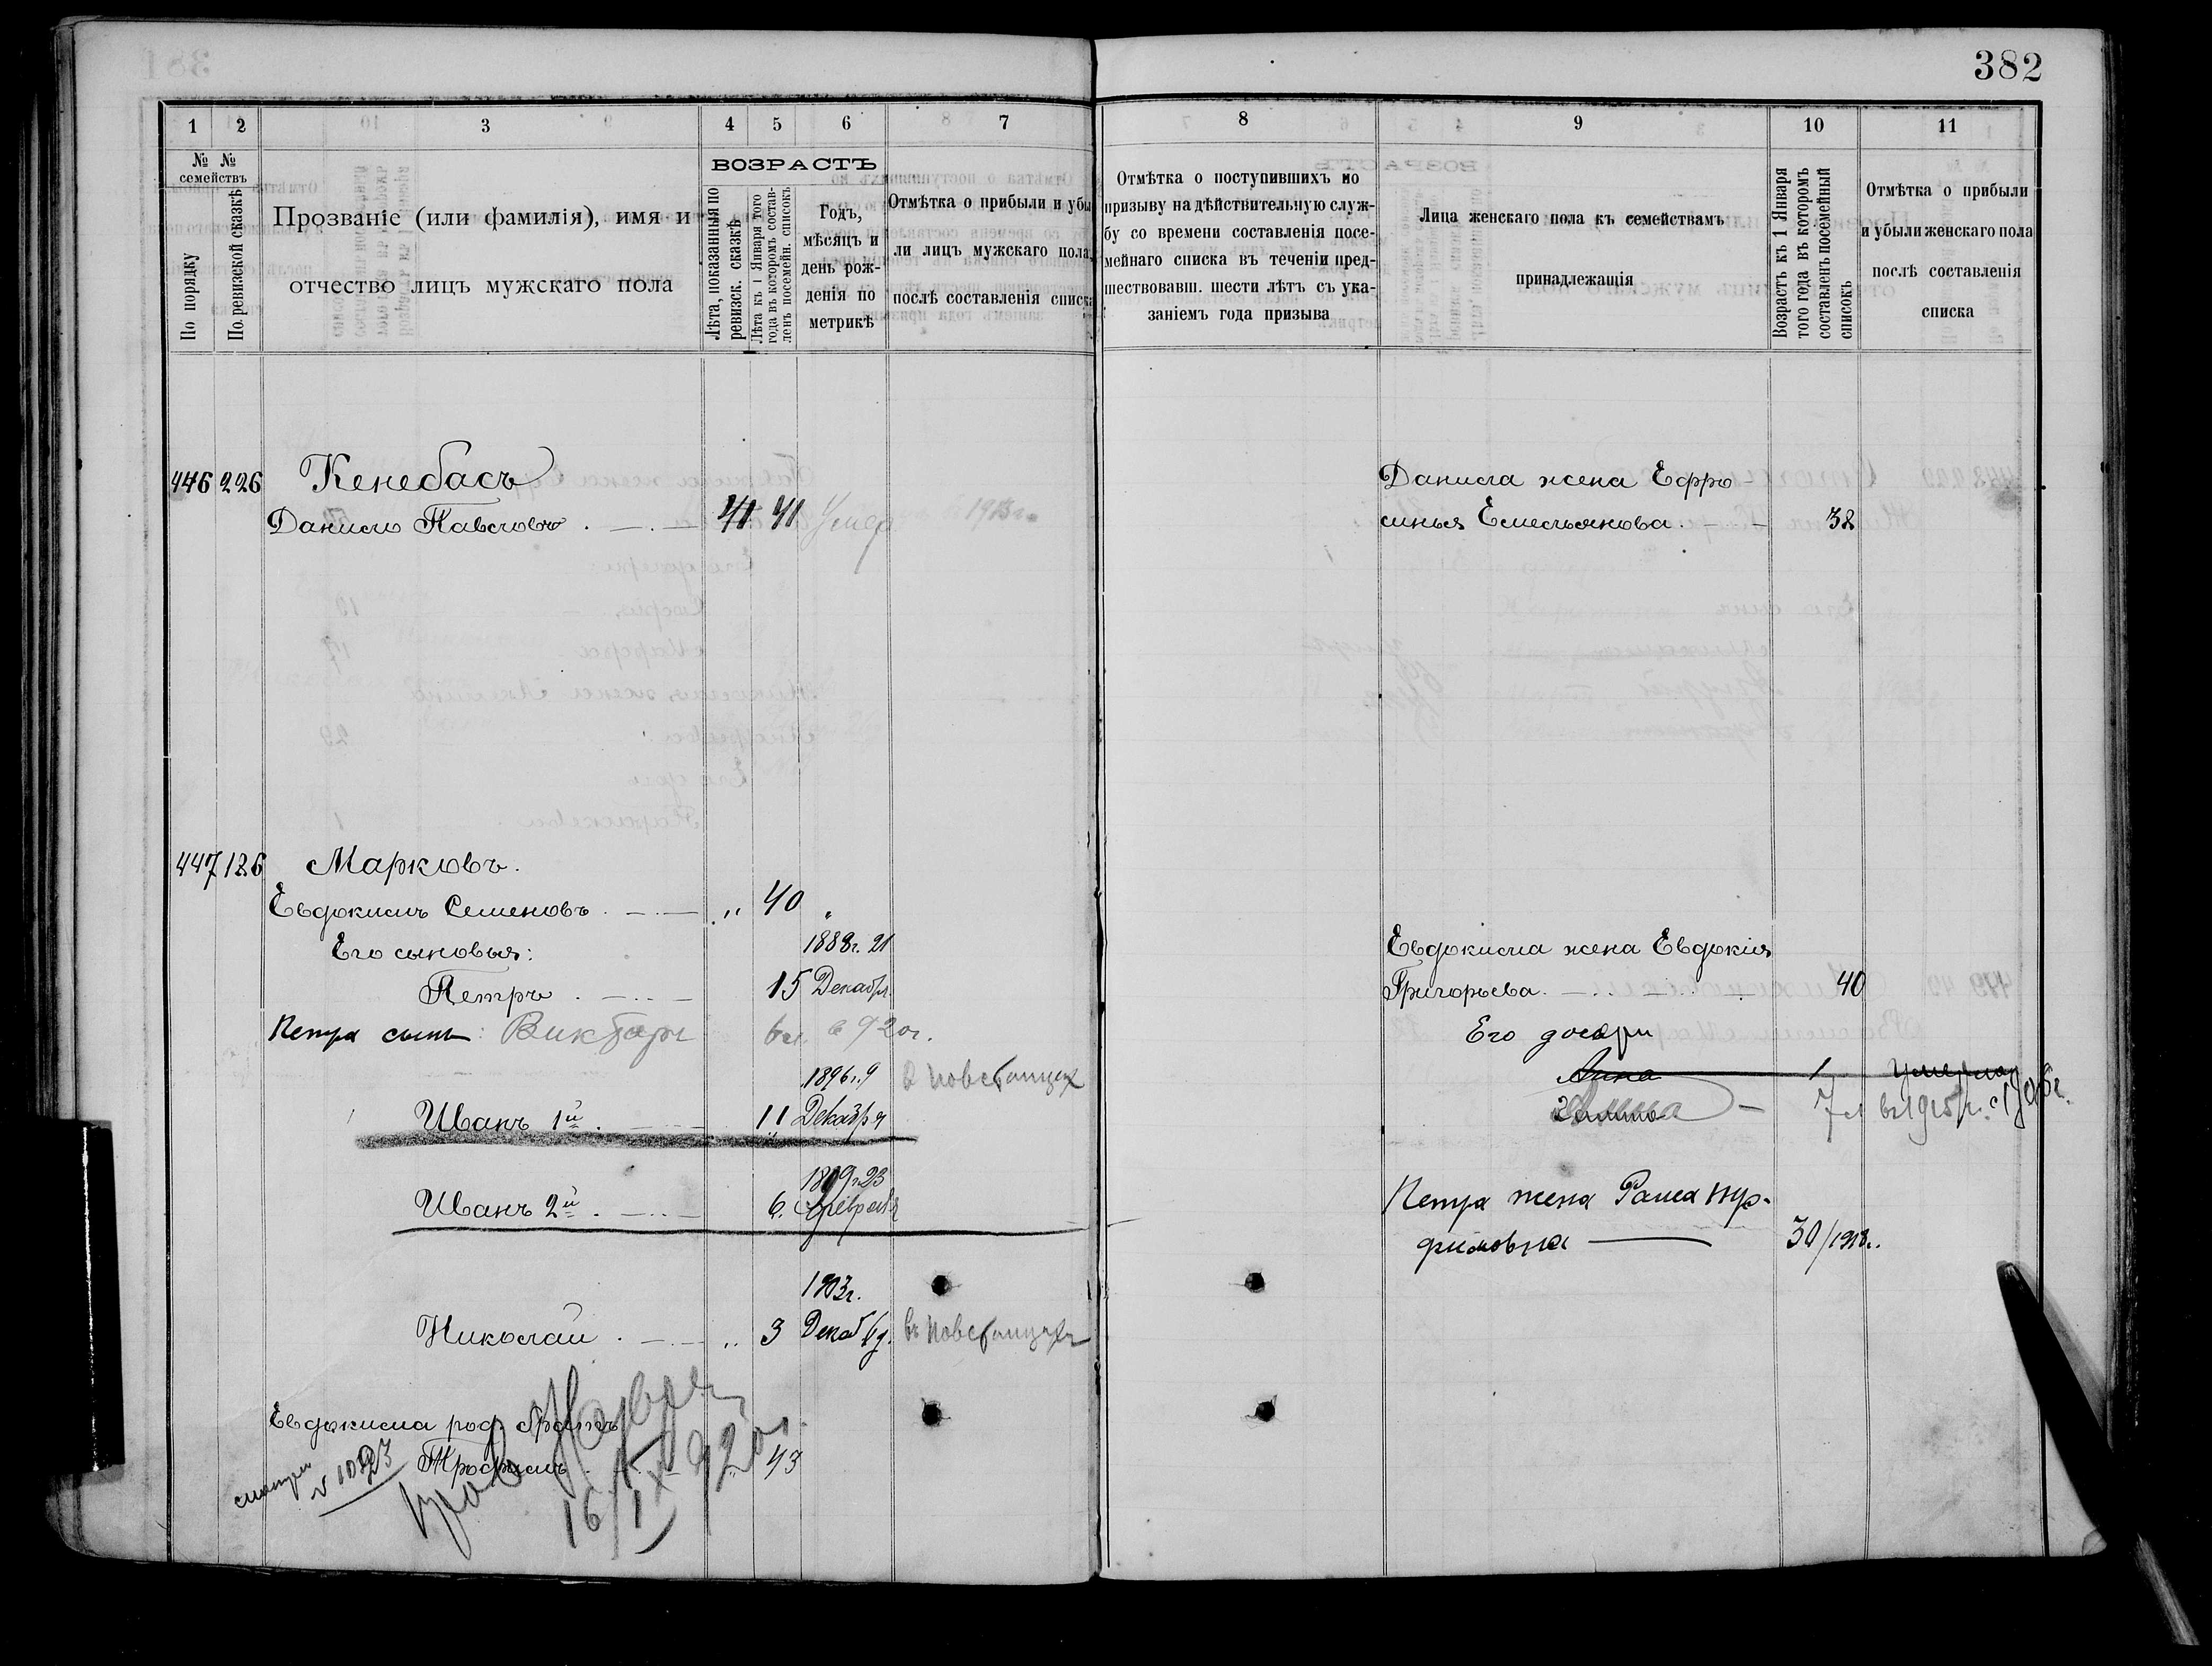 382
1 2 3 4 5 6 7
№ № семействъ
По порядку
По ревизской сказкѣ
Прозваніе (или фамилія), имя и
отчество лицъ мужскаго пола
ВОЗРАСТЪ
Лѣта, показанныя по
ревизск. сказкѣ
Лѣта къ 1 Января того
года въ которомъ состав-
ленъ посемейн. списокъ
Годъ,
мѣсяцъ и
день рож-
денія по
метрикѣ
Отмѣтка о прибыли и убы
ли лицъ мужскаго пола
послѣ составленія списка
8 9 10 11
Отмѣтка о поступившихъ по
призыву на дѣйствительную служ-
бу со времени составленія посе-
мейнаго списка въ теченіи пред-
шествовавш. шести лѣтъ съ ука-
заніемъ года призыва
Лица женскаго пола къ семействамъ
принадлежащія
Возрастъ къ 1 Января
того года въ которомъ
составленъ посемейный
списокъ
Отмѣтка о прибыли
и убыли женскаго пола
послѣ составленія
списка
446 226 Кенебасъ
Данило Павловъ 41 41 Умеръ 1913г.
Данила жена Ефро
синья Емельянова 38
447 126 Марковъ.
Евдокимъ Семеновъ „ 40 „
Его сыновья: 1888г. 21
Петръ 15 Декабря
Петра сынъ: Викторъ 6 л. в 920г.
1896г. 9
Иванъ 1й 11 Декабря
23
Иванъ 2й 6. Февраля
1903г.
Николай „ 3 Декаб 6д.
Евдокима род. братъ
Трофимъ 43
смотри
№
16/IX 920г.
Евдокима жена Евдокія
Григорьева 40
Его дочери
Анна 1 Умерла
7 л въ 1915г. 1906г.
Петра жена Раиса Тро-
фимовна 30/1918г.